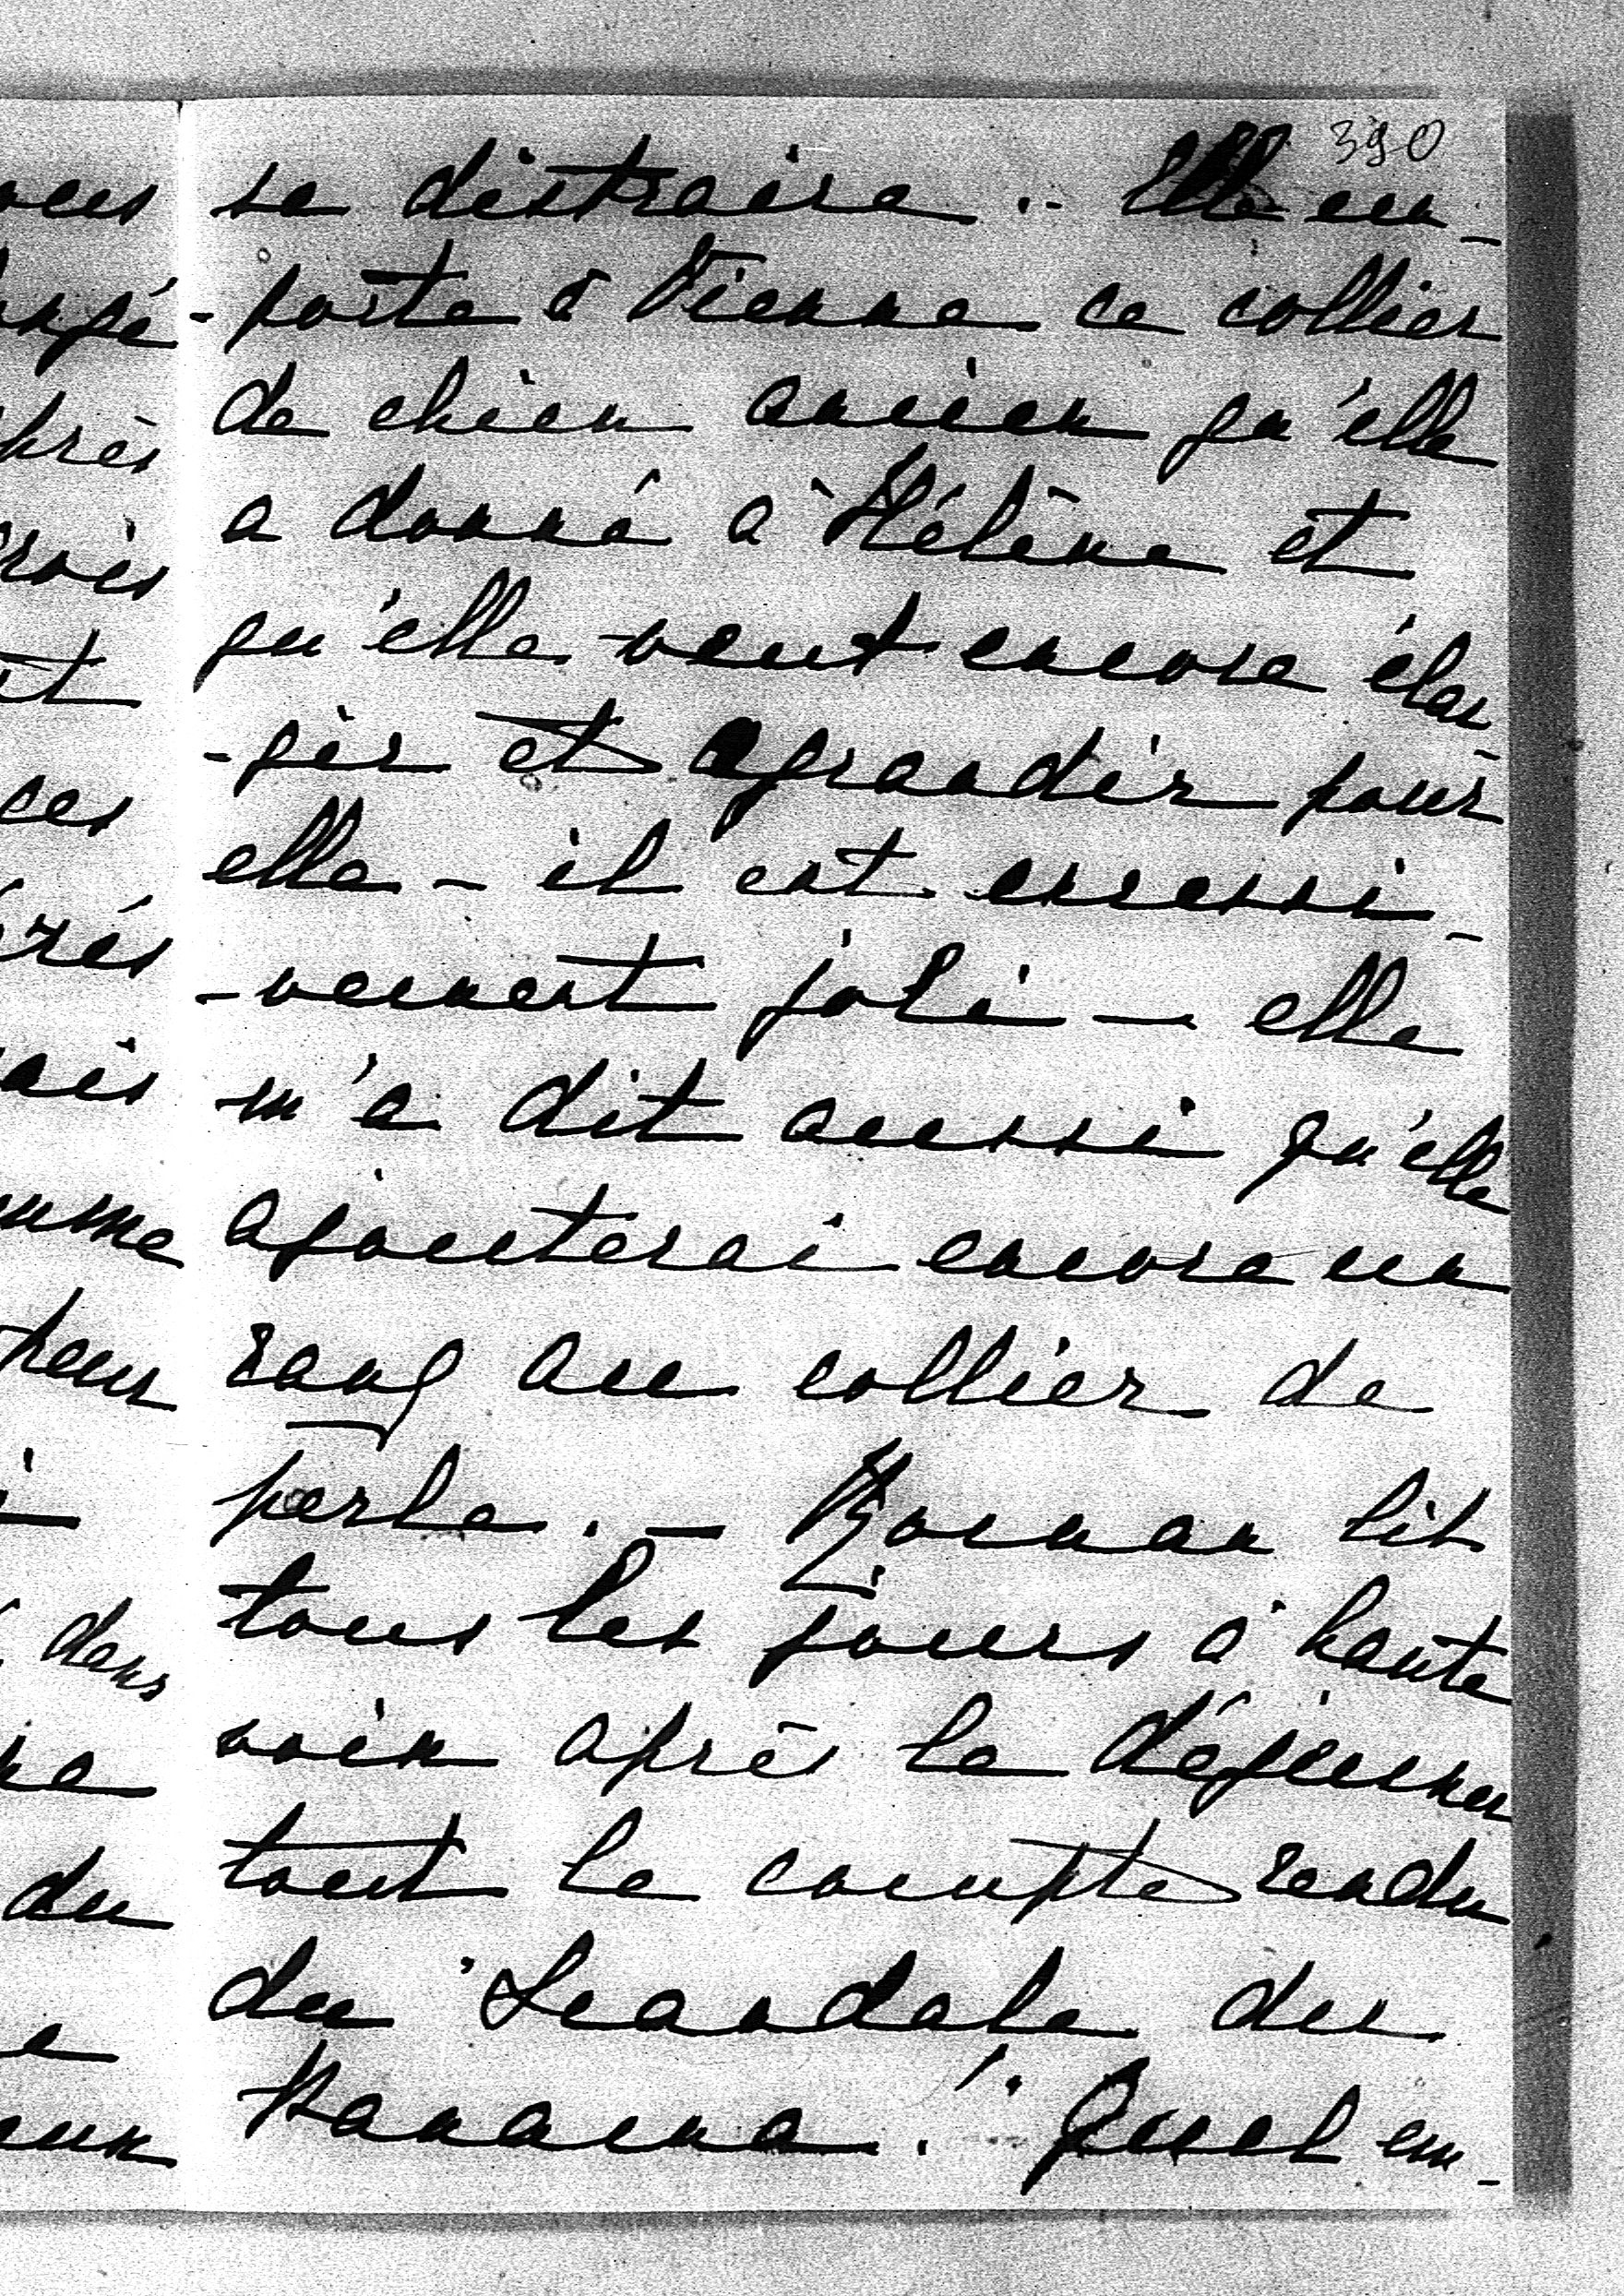 390
se distraire .. Elle em-
-porte à Vienne ce collier
de chien ancien qu'elle
a donné à Hélène et
qu'elle veut encore élar-
-gir et agrandir pour
elle - il est excessi-
-vement joli — elle
m'a dit aussi qu'elle
ajouterai encore un
rang au collier de
perle. —  lit
tous les jours à haute
voix après le déjeuner
tout le compte rendu
du Scandale du
Panama! Quel em-